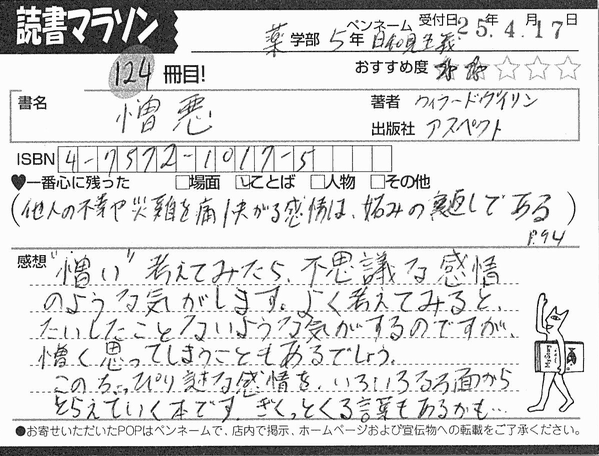 読書マラソン
ペンネーム 受付日 25年4月17日
薬学部 5年 日和見主義
124冊目! おすすめ度
書名 憎悪
著者 ウィラードゲイリン
出版社 アスペクト
ISBN 4-7572-1017-5
♥一番心に残った □場面 □ことば □人物 □その他
(他人の不幸や災難を痛快がる感情は、妬みの裏返しである)
P.94
感想 "憎い" 考えてみたら、不思議な感情
のような気がします。よく考えてみると、
たいしたことないような気がするのですが、
憎く思ってしまうこともあるでしょう。
このちょっぴり謎な感情を、いろいろな面から
とらえていく本です。ぎくっとくる言葉もあるかも…
●お寄せいただいたPOPはペンネームで、店内で掲示、ホームページおよび宣伝物への転載をご了承ください。